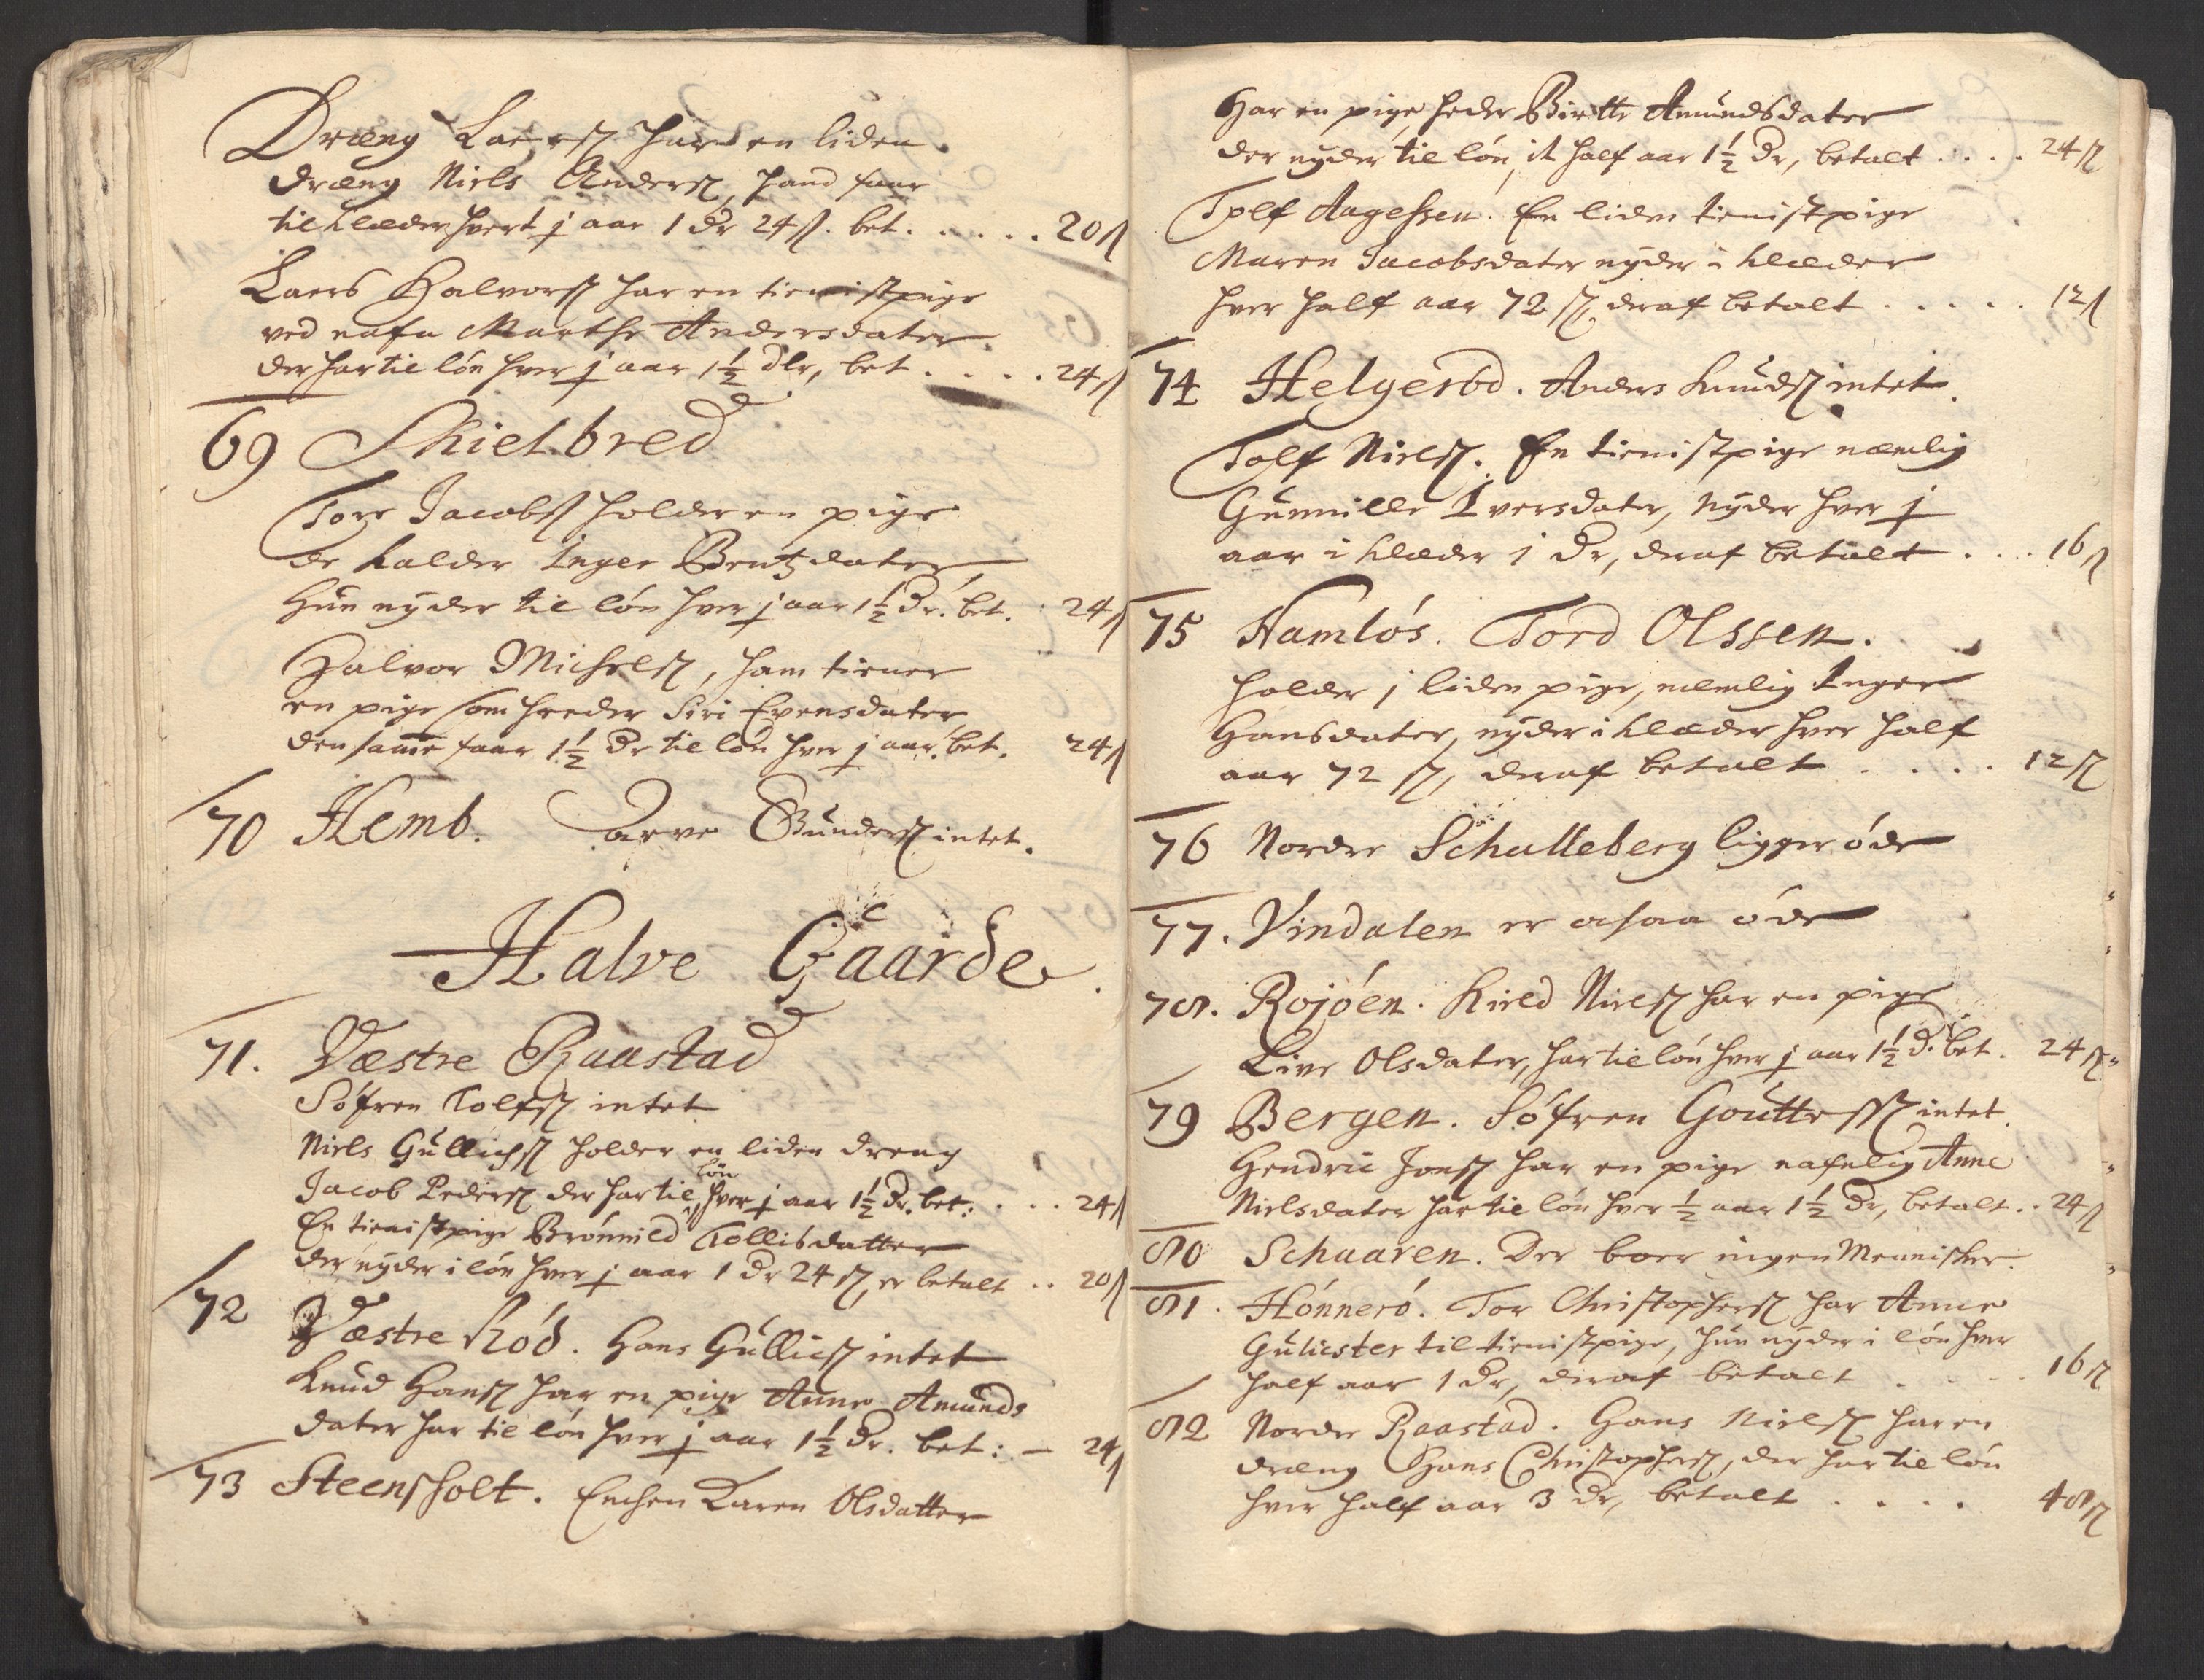 Dræng Laersß har en liden
dræng Niels Andersß, hand faar
til klæder hvert j aar 1 Dr 24 ß. bet. . . . . 20 ß
Laers Halvorsß har en tienistpige
ved nafn Marthe Andersdater
der har til lön hver j aar 1½ dlr, bet . . . . 24 ß
69 Skielbred
Tore Jacobsß holder en pige
de kalder Inger Bentzdater,
Hun nyder til lön hver j aar 1½ Dr. bet. 24 ß
Halvor Michelsß, ham tiener
en pige som heeder Siri Evensdater
den samme faar 1½ Dr til lön hver j aar. bet. 24 ß
70 Hemb. Tarve Gundersß intet.
Halve Gaarde.
71. Væstre Raastad
Söfren Tolfsß intet
Niels Gullichsß holder en liden dreng
Jacob Pedersß der har til lön hver j aar 1½ Dr. bet: . . . 24 ß
En tienistpige Brönnild Tollisdatter
der nyder i lön hver j aar 1 Dr 24 ß, er betalt . . 20 ß
72 Væstre Röd. Hans Gullicsß intet
Knud Hansß har en pige Anne Amunds
dater har til lön hver j aar 1½ Dr. bet: – 24 ß
73 Steensholt. Enchen Karen Olsdatter
Har en pige heder Birtte Amundsdater
der nyder til lön it half aar 1½ Dr, betalt . . . . 24 ß
Tolf Aagessen. En liden tienistpige
Maren Jacobsdater nyder i klæder
hver half aar 72 ß, deraf betalt . . . . . 12 ß
74 Helgeröd. Anders Knudsß intet.
Tolf Nielsß. En tienistpige nemlig
Gunnille Iversdater, nyder hver j
aar i klæder 1 Dr, deraf betalt . . . 16 ß
75 Hamlös. Tord Olssen.
holder j liden pige, nemlig Inger
Hansdater, nyder i klæder hver half
aar 72 ß, deraf betalt . . . . 12 ß
76 Nordre Schalleberg ligger öde
77. Vindalen er osaa öde
78. Rojöen. Kield Nielsß har en pige
Live Olsdater, har til lön hver j aar 1½ D. bet. 24 ß
79 Bergen. Söfren Gouttessß intet.
Hendric Jonsß har en pige nafnlig Anne
Nielsdater har til lön hver ½ aar 1½ Dr, betalt . . 24 ß
80 Schaaren. Der boer ingen Mennisker.
81. Hönnerö. Tor Christophersß har Anne
Gulicster til tienistpige, hun nyder i lön hver
half aar 1 Dr, deraf betalt . . . . 16 ß
82 Nordre Raastad. Hans Nielsß har en
dræng Hans Christophersß, der har til lön
hver half aar 3 Dr, betalt . . . . 48 ß